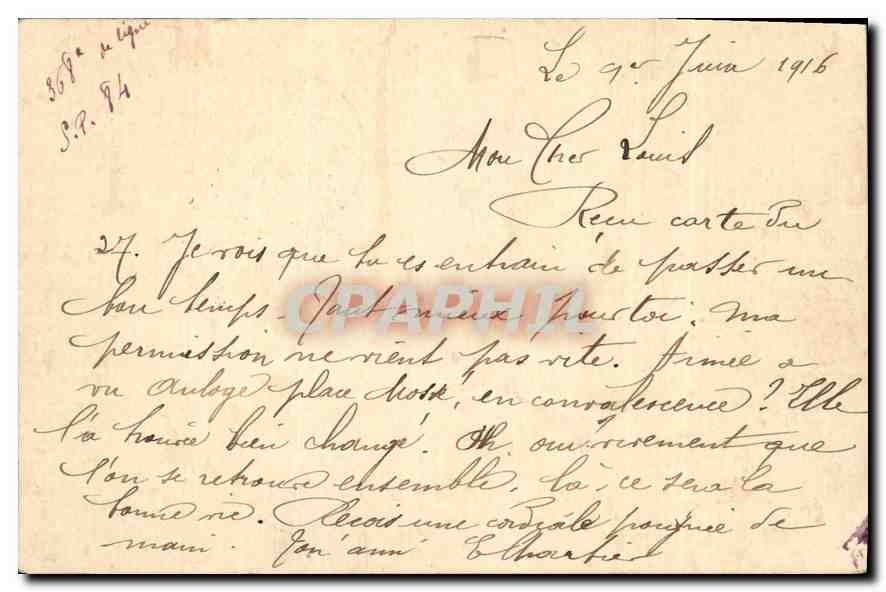 368e de ligne
S.P. 84
Le 1er Juin 1916
Mon Cher Louis
Reçu carte du
27. Je vois que tu es entrain de passer un
bon temps. Tant mieux pour toi. Ma
permission ne vient pas vite. Aimée a
vu place en convalescence? Elle
l'a trouvé bien changé. Oh. oui vivement que
l'on se retrouve ensemble. là, ce sera la
bonne vie. Recois une cordiale poignée de
main. Ton ami E Chartier
CPAPHIL